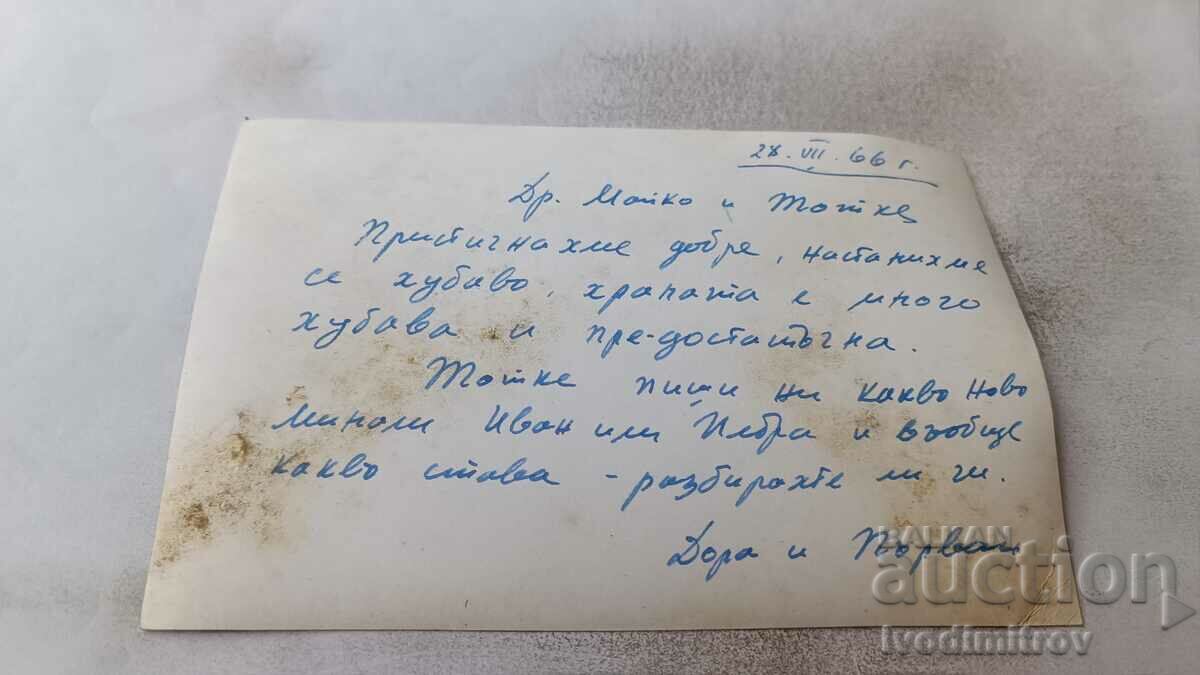 28. VII. 66 г.
Др. Майко и Тотке
Пристигнахме добре, настанихме
се хубаво, храната е много
хубава и пре-достатъчна.
Тотке пиши ни какво ново
минали Иван или и въобще
какво става - разбирахте ли ги.
Дора и Първан
BALKAN
auction
Ivodimitrov